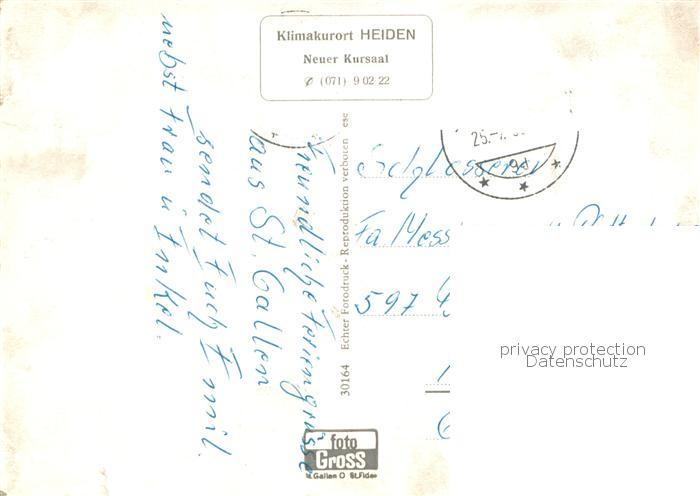 Klimakurort HEIDEN
Neuer Kursaal
✆ (071) 9 02 22
Freundliche Feriengrüsse
aus St. Gallen
sendet Euch Emil.
nebst Frau u Enkel.
30164 Echter Fotodruck - Reproduktion verboten ese
25.
Schlosserei
Fa Mess
597
privacy protection
Datenschutz
foto
GROSS
St.Gallen O St.Fiden